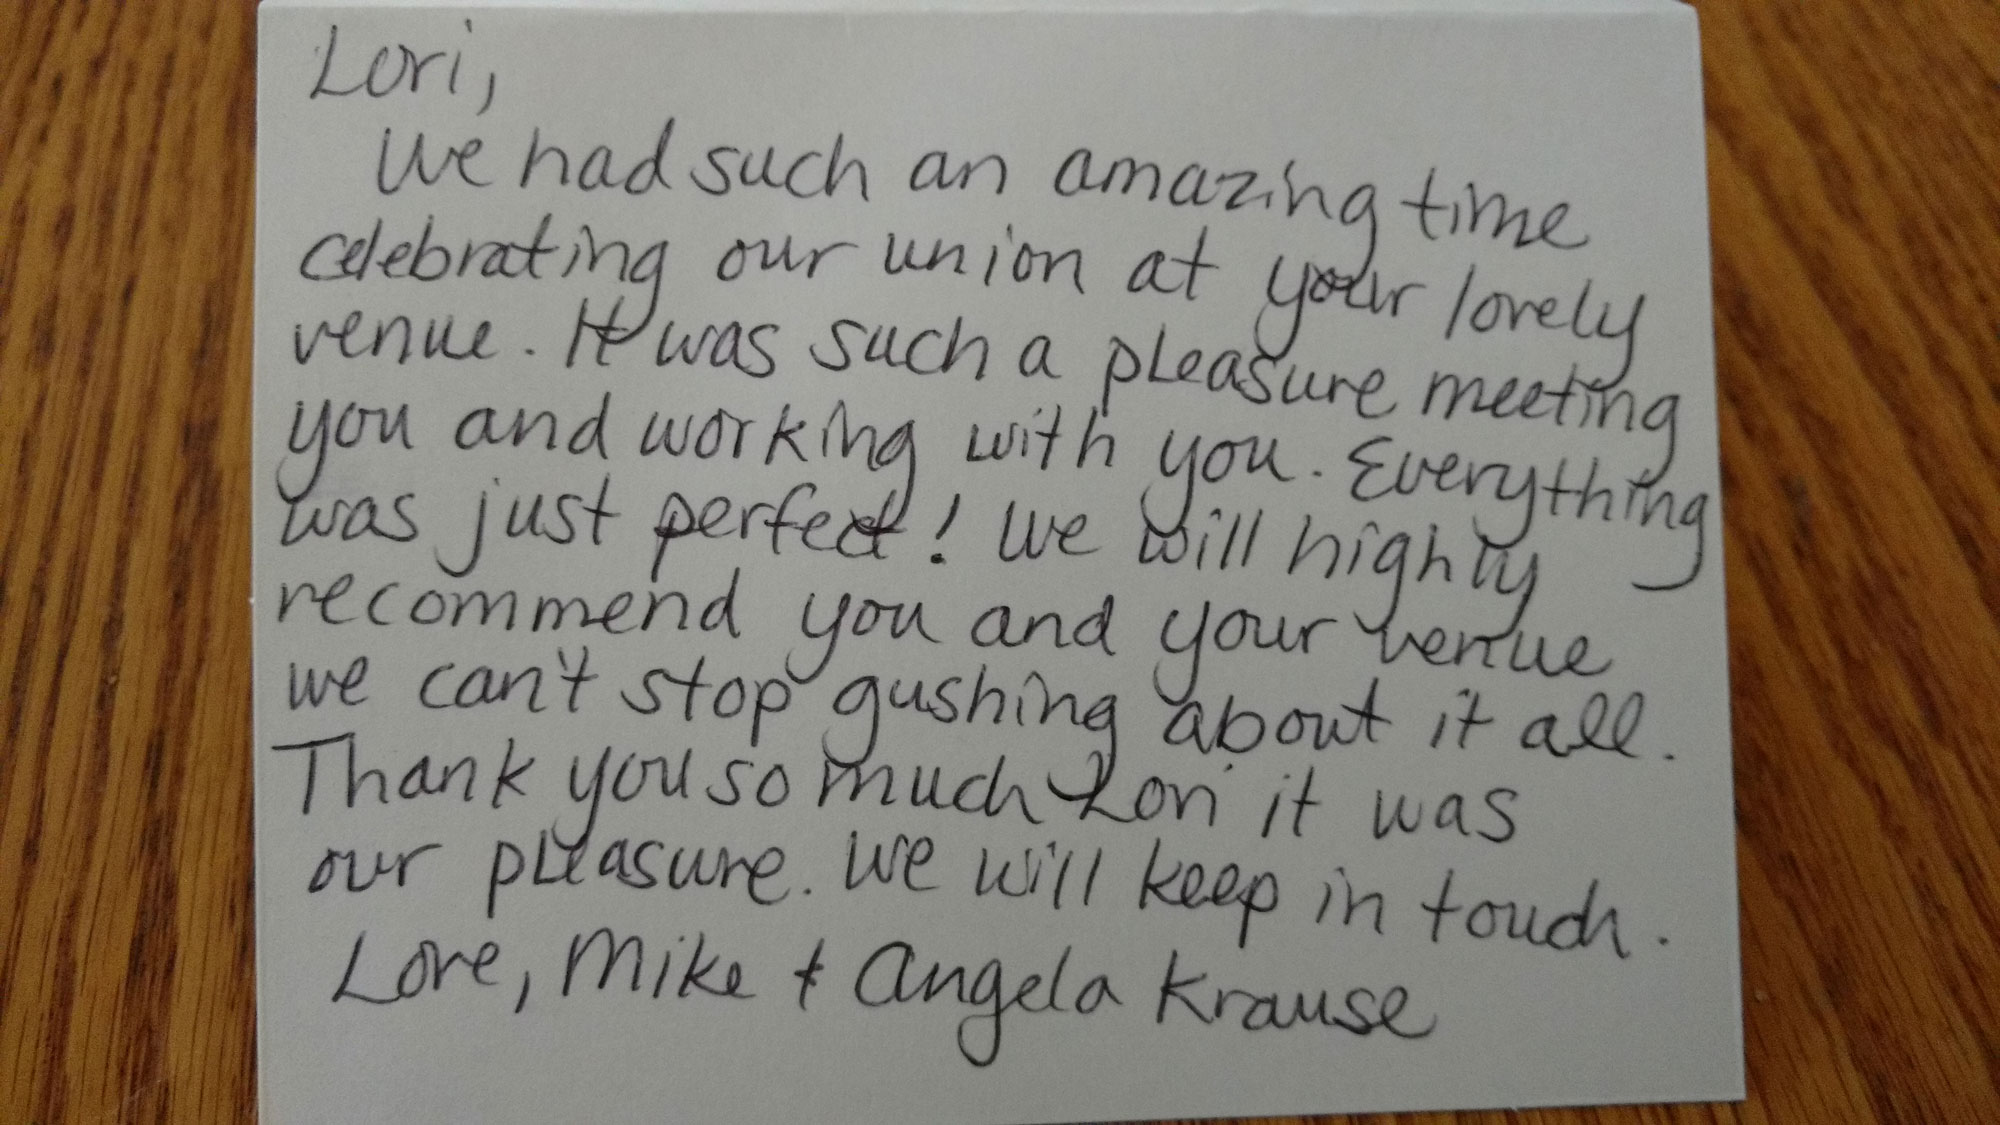 Lori,
We had such an amazing time
celebrating our union at your lovely
venue. It was such a pleasure meeting
you and working with you. Everything
was just perfect! We will highly
recommend you and your venue
we can't stop gushing about it all.
Thank you so much Lori it was
our pleasure. We will keep in touch.
Love, Mike & Angela Krause